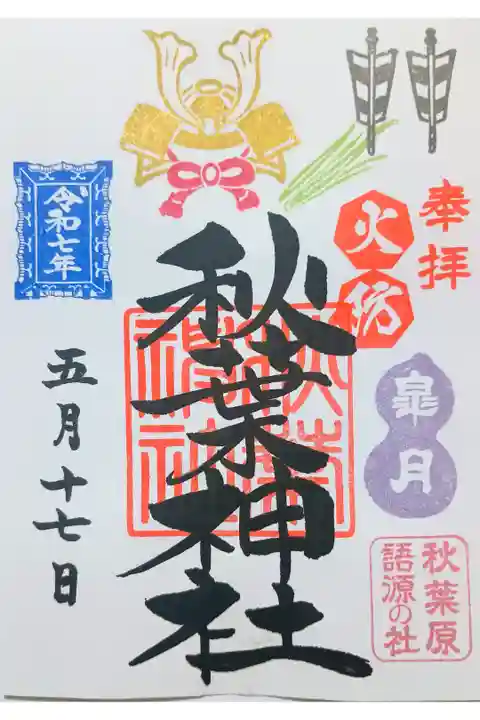 奉拝
火防
皐月
秋葉原
語源の社
秋葉神社
秋葉
神社
令和七年
五月十七日